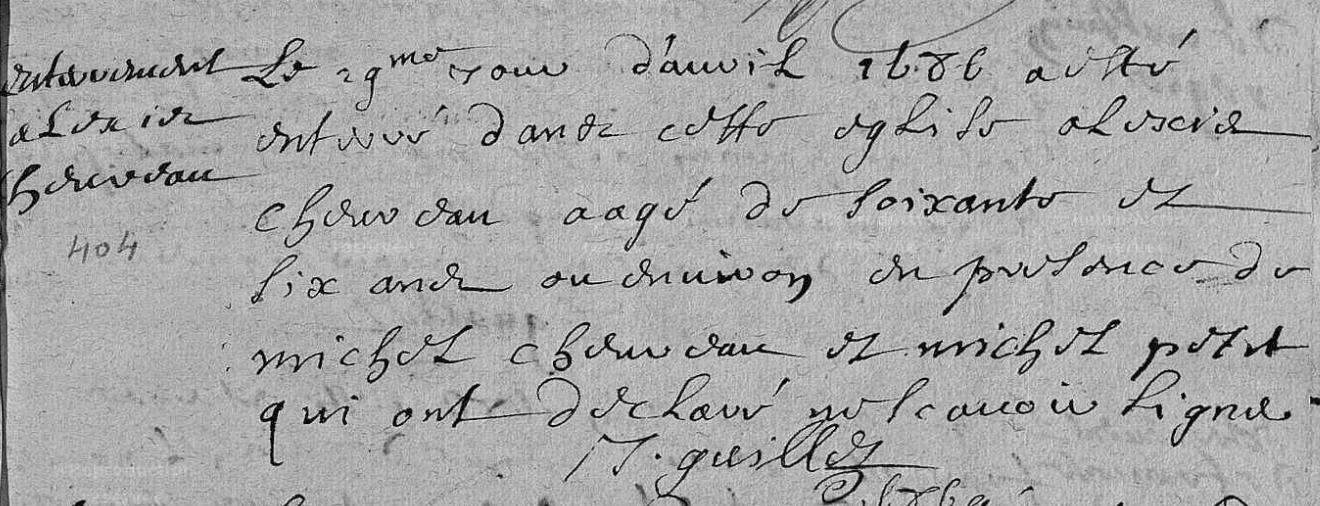 enterrement
alexis
cherreau
404
Le 29me jour d'auril 1686 a esté
enterré dans cette eglise alexis
cherreau aagé de soixante et
six ans ou enuiron en presence de
michel cherreau et michel petit
qui ont declaré ne scauoir signer
J. guillet